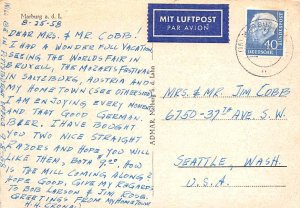 Marburg a. d. L.
8-25-58
DEAR MRS. & MR COBB!
I HAD A WONDER FULL VACATION
SEEING THE WORLDS FAIR IN
BRUXELL, THE MOZARTS FESTIVAL
IN SALZBURG, AUSTRIA AND
MY HOME TOWN (SEE OTHERSIDE)
I AM ENJOYING EVERY MOMENT
AND THAT GOOD GERMAN
BEER. I HAVE BOUGHT
YOU TWO NICE STRAIGHT
RAZORS AND HOPE YOU WILL
LIKE THEM, BOTH 9.00 HOW
IS THE MILL COMING ALONG?
HOPE GOOD, GIVE MY REGARDS
TO BOB CARSON & JIM ROSE.
GREETINGS FROM MY HOMETOWN
H. H. CRONA
MIT LUFTPOST
PAR AVION
40
MRS. & MR. JIM COBB
6750-37TH AVE S.W.
SEATTLE, WASH.
U.S.A.